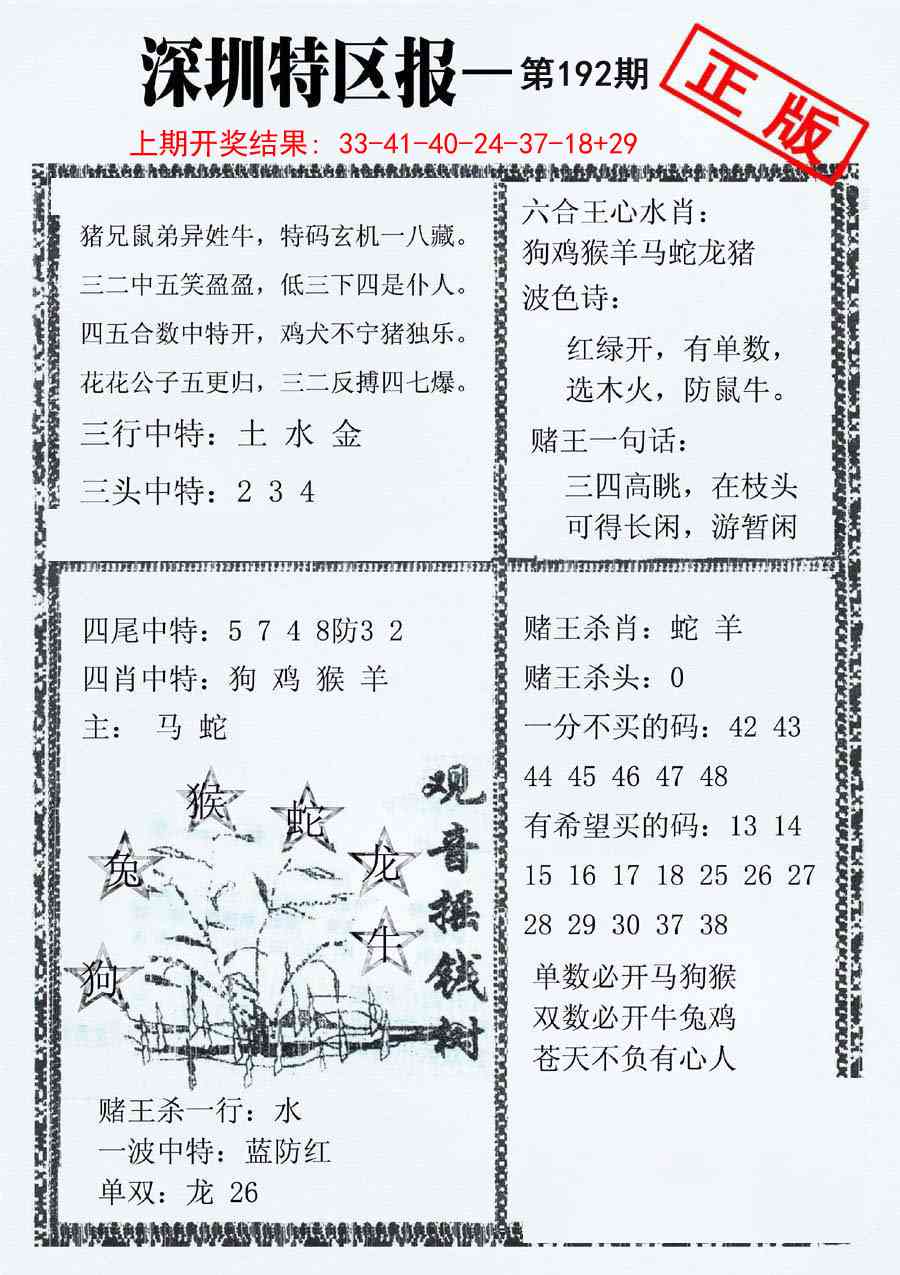 深圳特区报—第192期
正版
上期开奖结果: 33-41-40-24-37-18+29
猪兄鼠弟异姓牛，特码玄机一八藏。
三二中五笑盈盈，低三下四是仆人。
四五合数中特开，鸡犬不宁猪独乐。
花花公子五更归，三二反搏四七爆。
三行中特：土 水 金
三头中特：2 3 4
六合王心水肖：
狗鸡猴羊马蛇龙猪
波色诗：
红绿开，有单数，
选木火，防鼠牛。
赌王一句话：
三四高眺，在枝头
可得长闲，游暂闲
四尾中特：5 7 4 8防3 2
四肖中特：狗 鸡 猴 羊
主： 马 蛇
猴
蛇
兔
龙
牛
狗
观音摇钱树
赌王杀一行：水
一波中特：蓝防红
单双：龙 26
赌王杀肖：蛇 羊
赌王杀头：0
一分不买的码：42 43
44 45 46 47 48
有希望买的码：13 14
15 16 17 18 25 26 27
28 29 30 37 38
单数必开马狗猴
双数必开牛兔鸡
苍天不负有心人